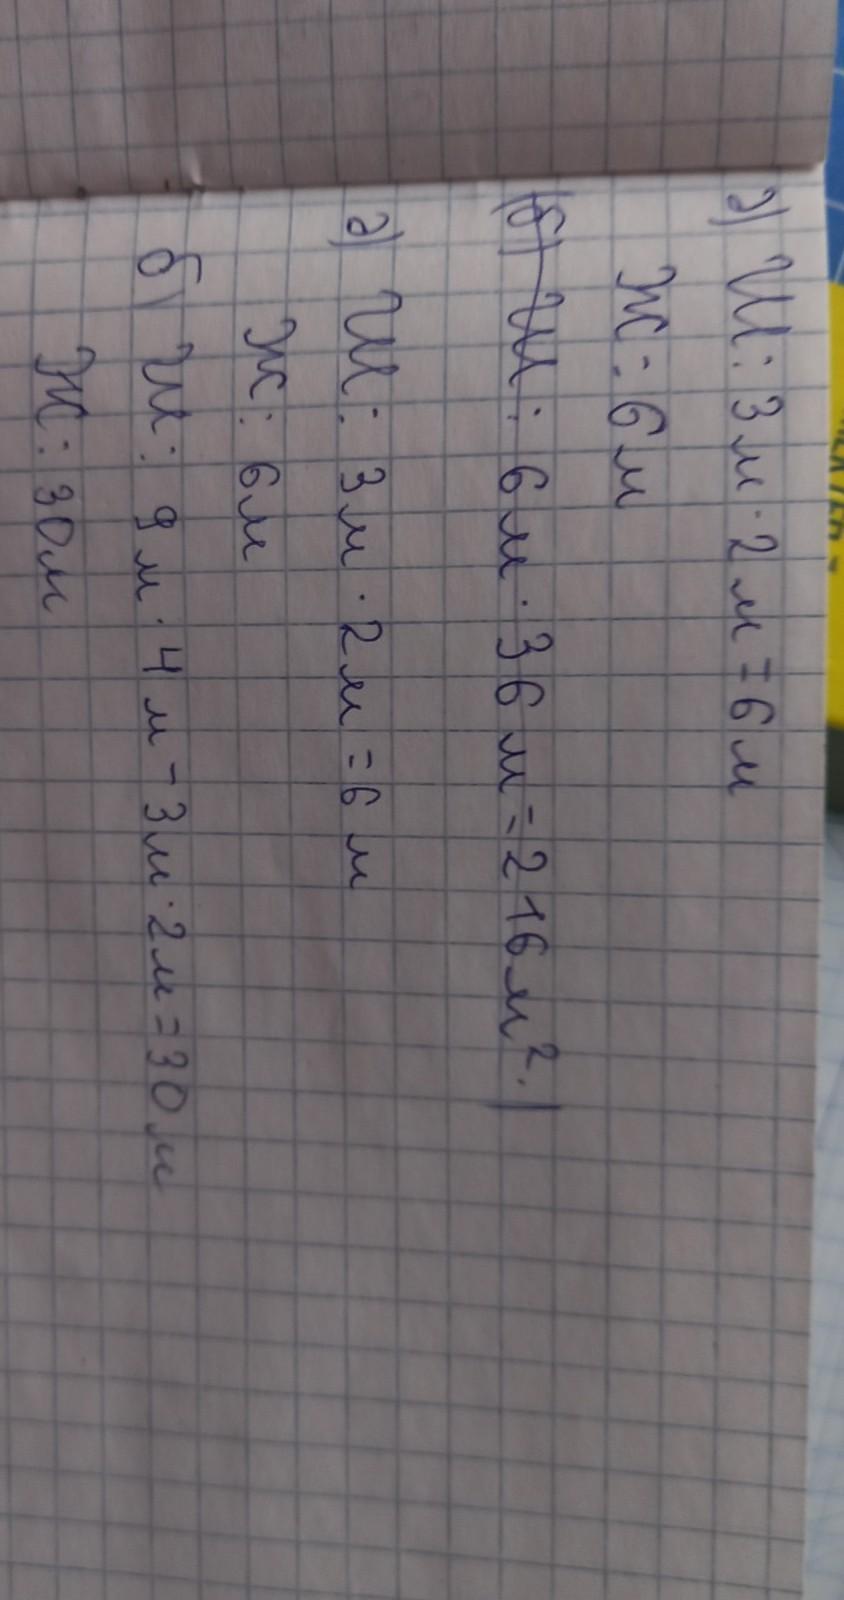 а) Ш: 3м · 2м = 6м
Ж: 6м
б) Ш: 6м · 36м = 216м².
а) Ш: 3м · 2м = 6м
Ж: 6м
б) Ш: 9м · 4м - 3м · 2м = 30м
Ж: 30м